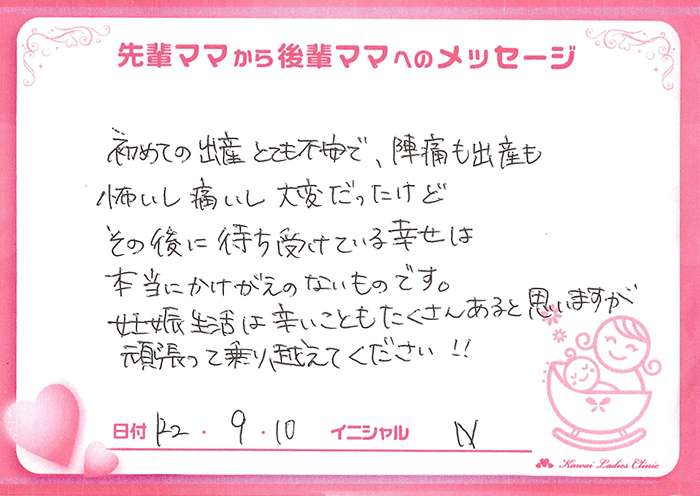 先輩ママから後輩ママへのメッセージ
初めての出産とても不安で、陣痛も出産も
怖いし痛いし大変だったけど
その後に待ち受けている幸せは
本当にかけがえのないものです。
妊娠生活は辛いこともたくさんあると思いますが
頑張って乗り越えてください!!
日付 R2・9・10 イニシャル N
Kawai Ladies Clinic